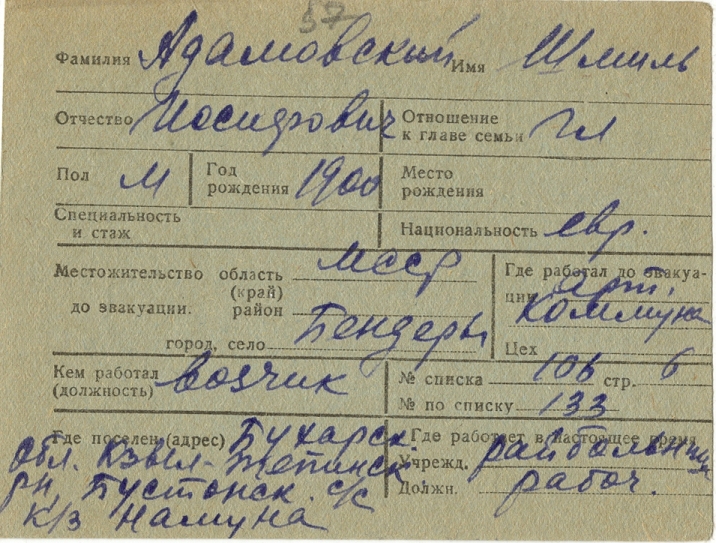 57
Фамилия Адамовский Имя Шмиль
Отчество Иосифович Отношение к главе семьи Гл
Пол М Год рождения 1900 Место рождения
Специальность и стаж Национальность евр.
Местожительство до эвакуации. область (край) МССР
район
город, село Бендеры
Где работал до эвакуации арт. Коммуна
Цех
Кем работал (должность) возчик
№ списка 106 стр. 6
№ по списку 133
Где поселен (адрес) Бухарск.
обл. Кзыл-Тепинск
рн, Бустонск. с/с
к/з Намуна
Где работает в настоящее время
Учрежд. райбольница
Должн. рабоч.